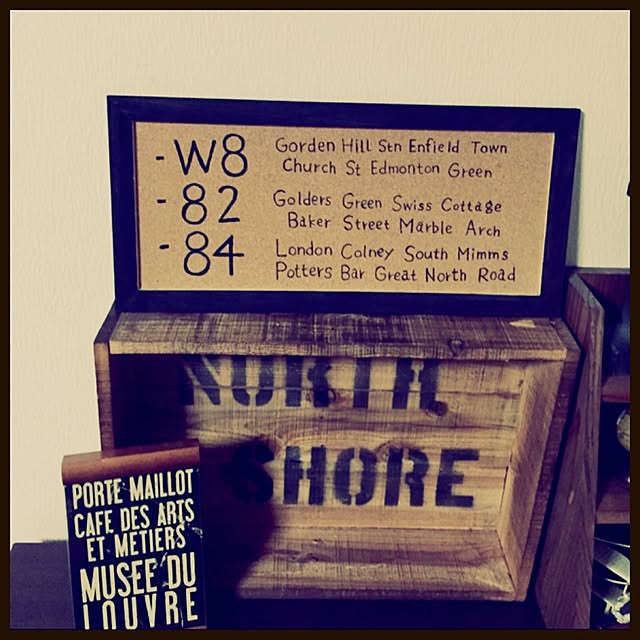 - W8 Gorden Hill Stn Enfield Town
Church St Edmonton Green
- 82 Golders Green Swiss Cottage
Baker Street Marble Arch
- 84 London Colney South Mimms
Potters Bar Great North Road
NORTH
SHORE
PORTE MAILLOT
CAFE DES ARTS
ET METIERS
MUSEE DU
LOUVRE